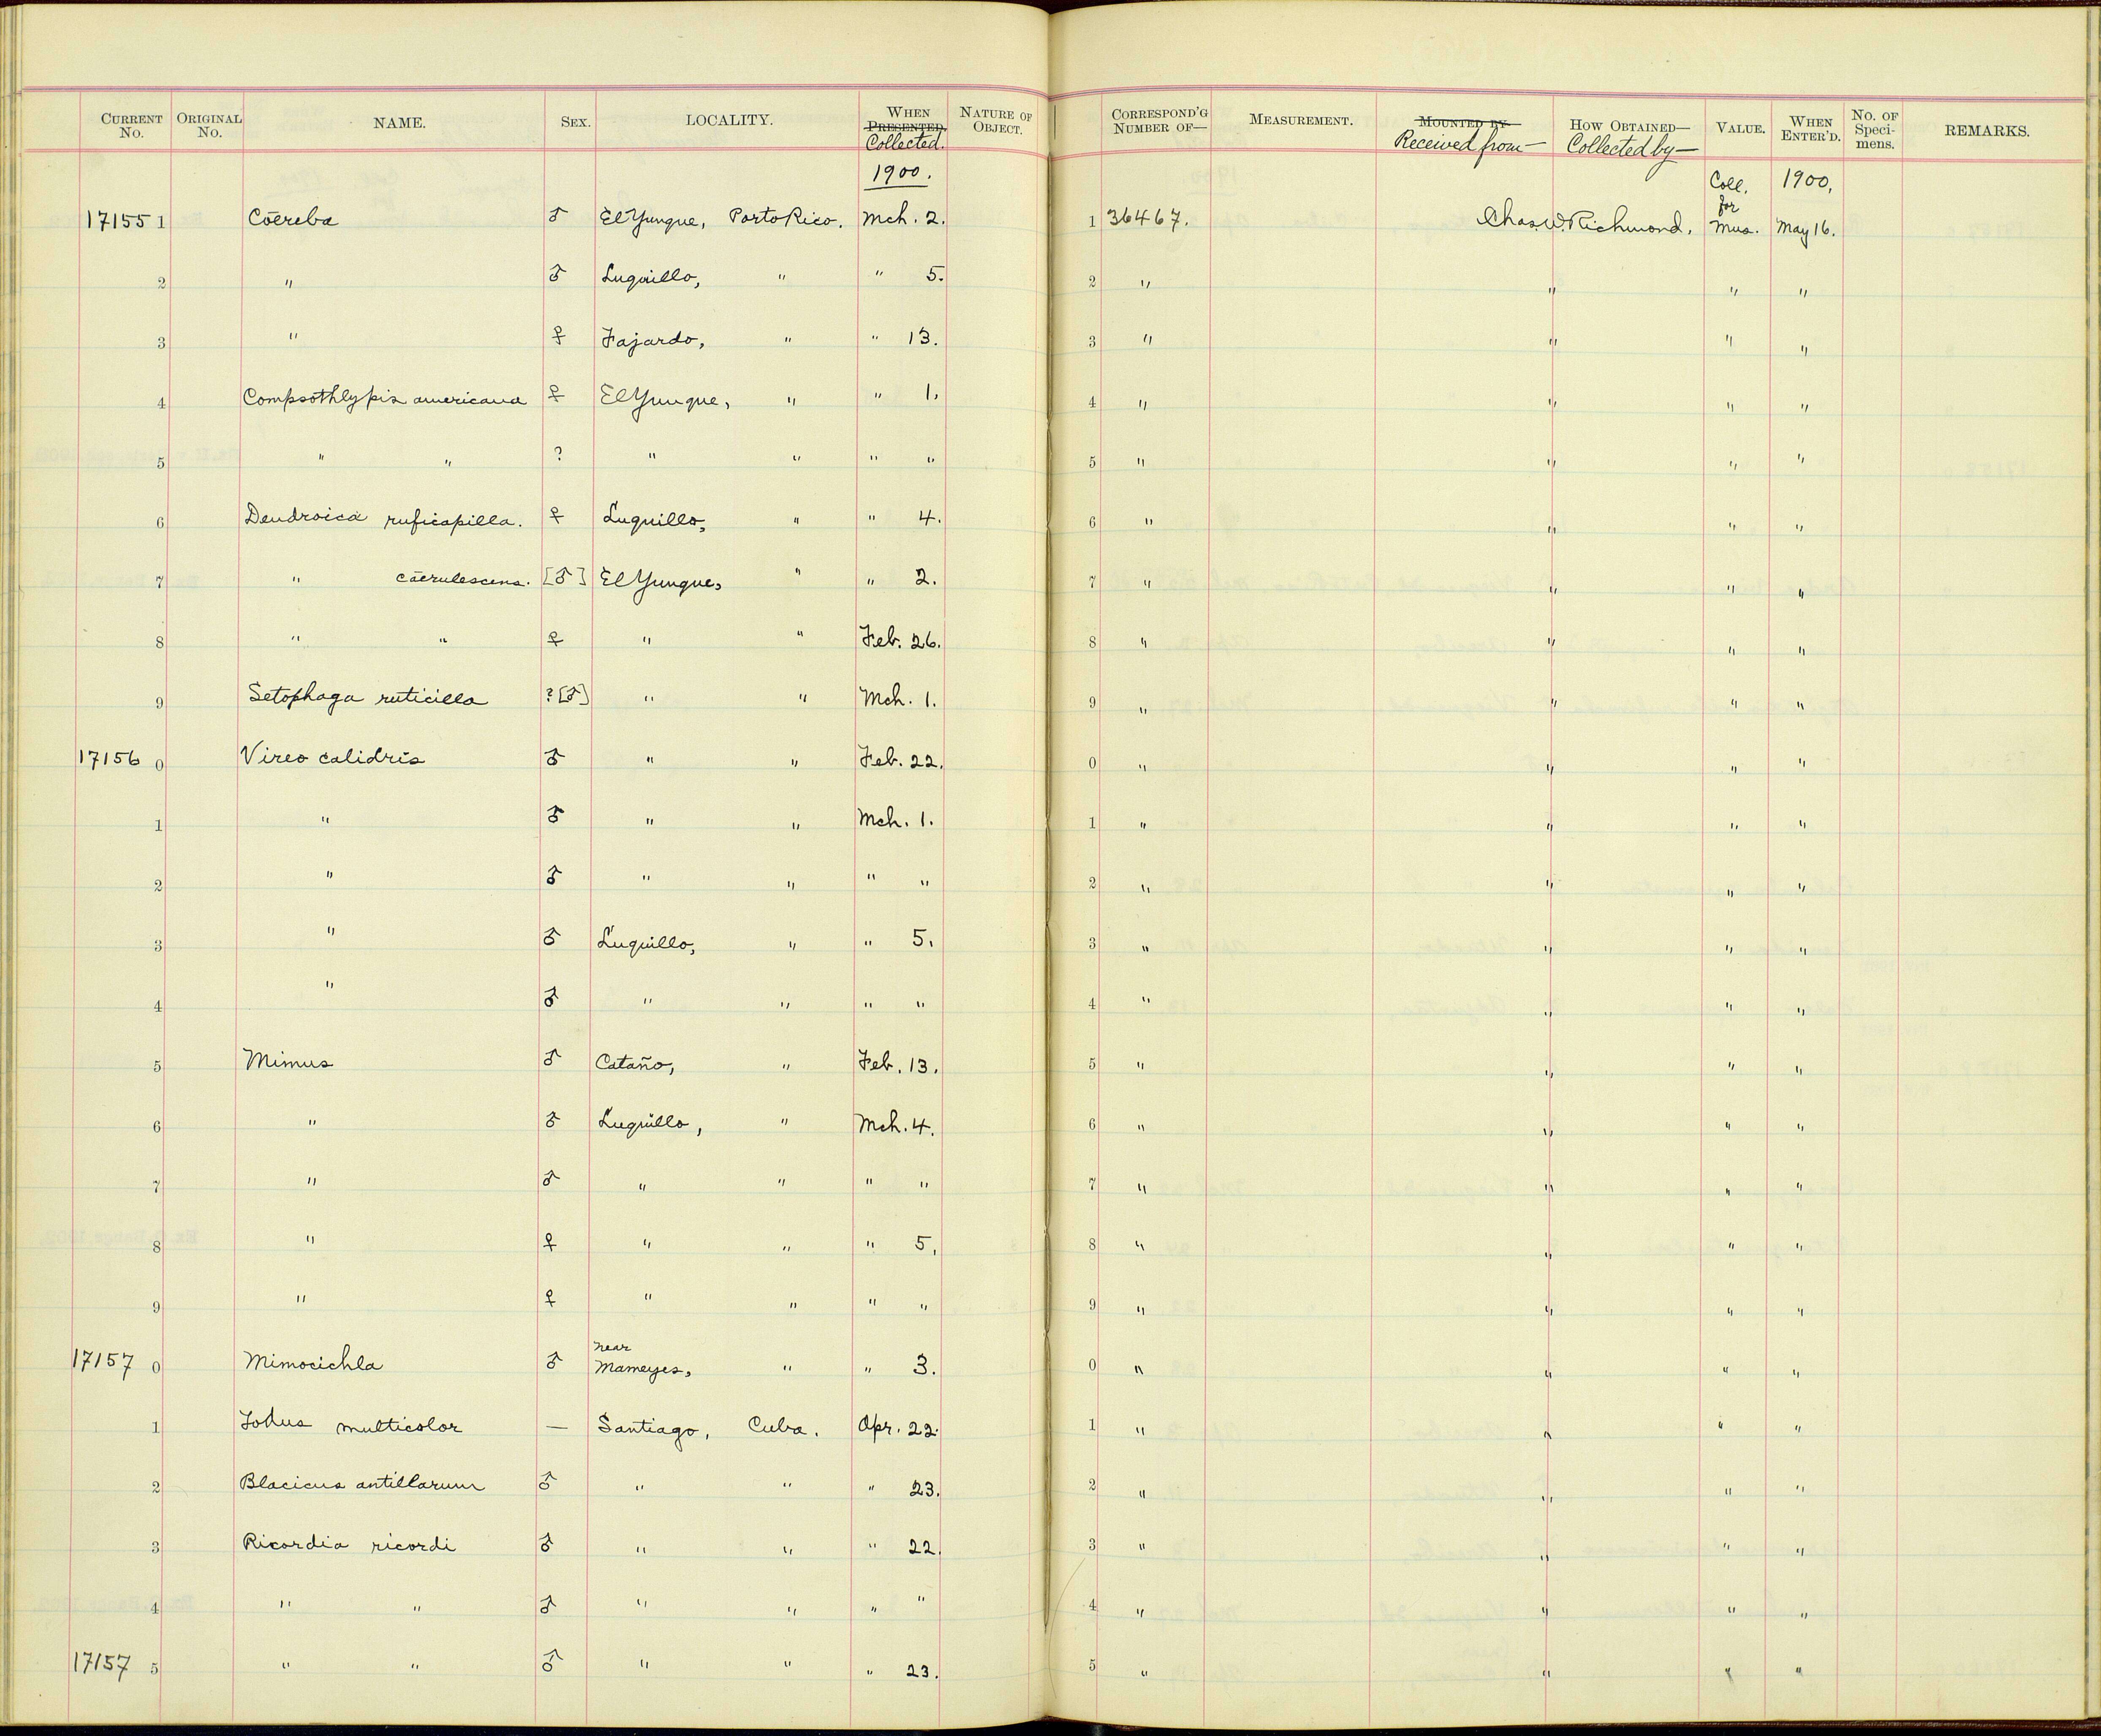 CURRENT No. ORIGINAL No. NAME. SEX. LOCALITY. WHEN PRESENTED. Collected. NATURE OF OBJECT. CORRESPOND'G NUMBER OF— MEASUREMENT. MOUNTED BY Received from— HOW OBTAINED— Collected by— VALUE. WHEN ENTER'D. No. OF Speci-mens. REMARKS.
1900. Coll. for 1900.
17155 1 Cœreba ♂ El Yunque, Porto Rico. Mch. 2. 1 36467. Chas. W. Richmond. Mus. May 16.
2 " ♂ Luquillo, " " 5. 2 " " " "
3 " ♀ Fajardo, " " 13. 3 " " " "
4 Compsothlypis americana ♀ El Yunque, " " 1. 4 " " " "
5 " " ? " " " " 5 " " " "
6 Dendroica ruficapilla. ♀ Luquillo, " " 4. 6 " " " "
7 " cœrulescens. [♂] El Yunque, " " 2. 7 " " " "
8 " " ♀ " " Feb. 26. 8 " " " "
9 Setophaga ruticilla ? [♂] " " Mch. 1. 9 " " " "
17156 0 Vireo calidris ♂ " " Feb. 22. 0 " " " "
1 " ♂ " " Mch. 1. 1 " " " "
2 " ♂ " " " " 2 " " " "
3 " ♂ Luquillo, " " 5. 3 " " " "
4 " ♂ " " " " 4 " " " "
5 Mimus ♂ Cataño, " Feb. 13. 5 " " " "
6 " ♂ Luquillo, " Mch. 4. 6 " " " "
7 " ♂ " " " " 7 " " " "
8 " ♀ " " " 5. 8 " " " "
9 " ♀ " " " " 9 " " " "
17157 0 Mimocichla ♂ near Mameyes, " " 3. 0 " " " "
1 Todus multicolor — Santiago, Cuba. Apr. 22. 1 " " " "
2 Blacicus antillarum ♂ " " " 23. 2 " " " "
3 Ricordia ricordi ♂ " " " 22. 3 " " " "
4 " " ♂ " " " " 4 " " " "
17157 5 " " ♂ " " " 23. 5 " " " "